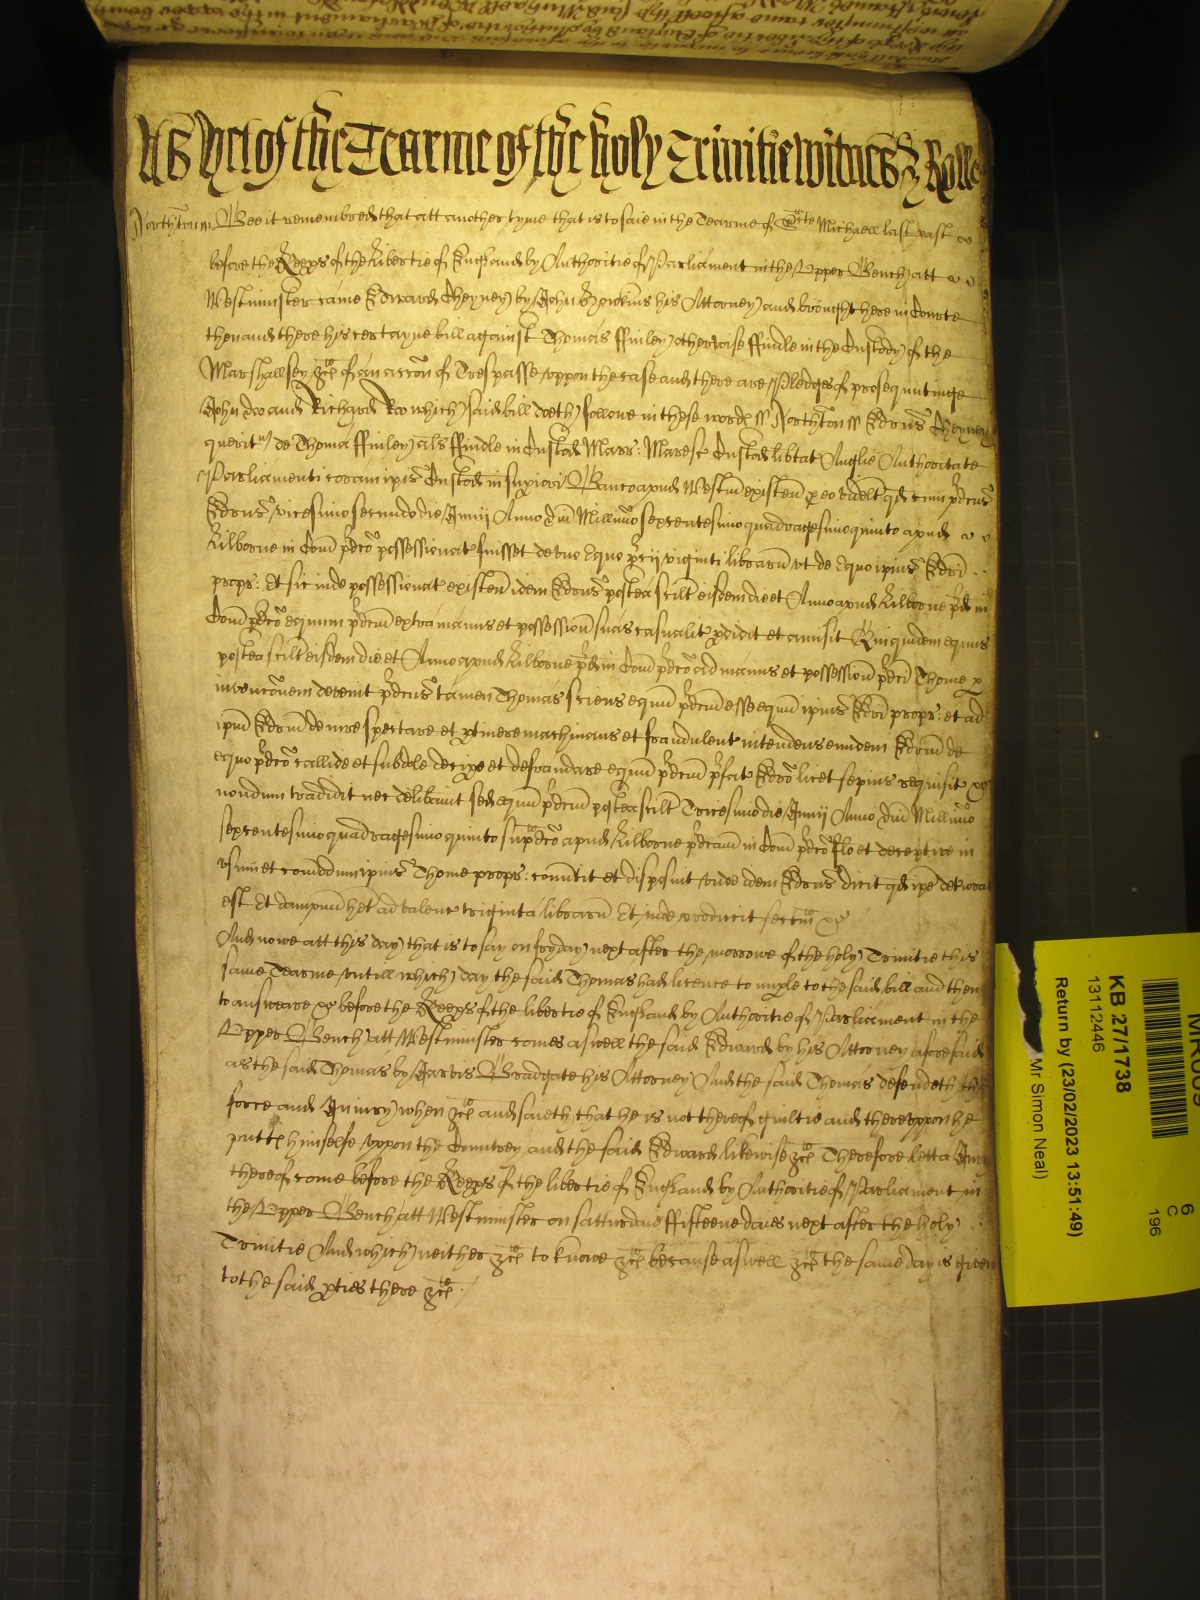 As Yet of the Tearme of the holy Trinitie Witnes H Rolle
Northton ss Bee it remembred that att another tyme that is to saie in the Tearme of Ste Michaell last past
before the Keeps of the Libertie of England by Authoritie of Parliament in the Upper Bench att
Westminster came Edward Cheyney by John Hopkins his Attorney and brought here in Courte
then and there his certayne bill against Thomas ffinley otherwise ffindle in the Custody of the
Marshallsey &c of an accon of Trespasse uppon the case and there are Pledges of prosequutinge
John doo and Richard Roo which said bill doeth followe in these words ss Northton ss Edrus Cheyney
querit de Thoma ffinley als ffindle in Custod Marr: Maresc Custod libtat Anglie Authoritate
Parliamenti coram ipis Custod in supiori Banco apud Westm existen p eo videlt qd cum pdcus
Edrus vicesimo secundo die Junii Anno Dni Millimo sexcentesimo quadragesimo quinto apud
Kilborne in Com pdco possessionat fuisset de uno equo pcii viginti libraru ut de equo ipius Edri
propr: Et sic inde possessionat existen idem Edrus postea scilt eisdem die et Anno apud Kilborne pd in
Com pdco equum pdcum extra manus et possession suas casualit pdidit et amisit Qui quidem equus
postea scilt eisdem die et Anno apud Kilborne pd in Com pdco ad manus et possession pdci Thome p
invenconem devenit pdcus tamen Thomas sciens equu pdcum esse equu ipius Edri propr: et ad
ipm Edrum de iure spectare et ptinere machinans et fraudulent intendens eundem Edrum de
equo pdco callide et subdole decipe et defraudare equu pdcum pfat Edro licet sepius requisit &c
nondum tradidit nec delibavit sed equu pdcum postea scilt Tricesimo die Junii Anno Dni Millimo
sexcentesimo quadragesimo quinto supdco apud Kilborne pdcam in Com pdco flo et deceptive in
usum et comodum ipius Thome propr: convtit et disposuit unde idem Edrus dicit qd ipe deteriorat
est Et dampnum het ad valenc triginta libraru Et inde producit sectam &c
And nowe att this day that is to say on fryday next after the morrowe of the holy Trinitie this
same Tearme untill which day the said Thomas had licence to imple to the said bill and then
to answeare &c before the Keeps of the libertie of England by Authoritie of Parliament in the
Upper Bench att Westminster comes aswell the said Edward by his Attorney aforesaid
as the said Thomas by Jarvis Bradgate his Attorney And the said Thomas defendeth the
force and Iniury when &c and saieth that he is not thereof guiltie and thereuppon he
putts himselfe uppon the Countrey and the said Edward likewise &c Therefore lett a Jury
thereof come before the Keeps of the libertie of England by Authoritie of Parliament in
the Upper Bench att Westminster on satturdaie ffifteene daies next after the holy
Trinitie And which neither &c to knowe &c because aswell &c the same day is given
to the said pties there &c
KB 27/1738
13112446
Return by (23/02/2023 13:51:49)
Mr Simon Neal)
6
C
196